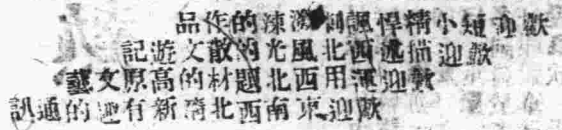 歡迎短小精悍諷刺潑辣的作品
歡迎描述西北風光的散文遊記
歡迎運用西北題材的高原文藝
歡迎東南西北清新有趣的通訊